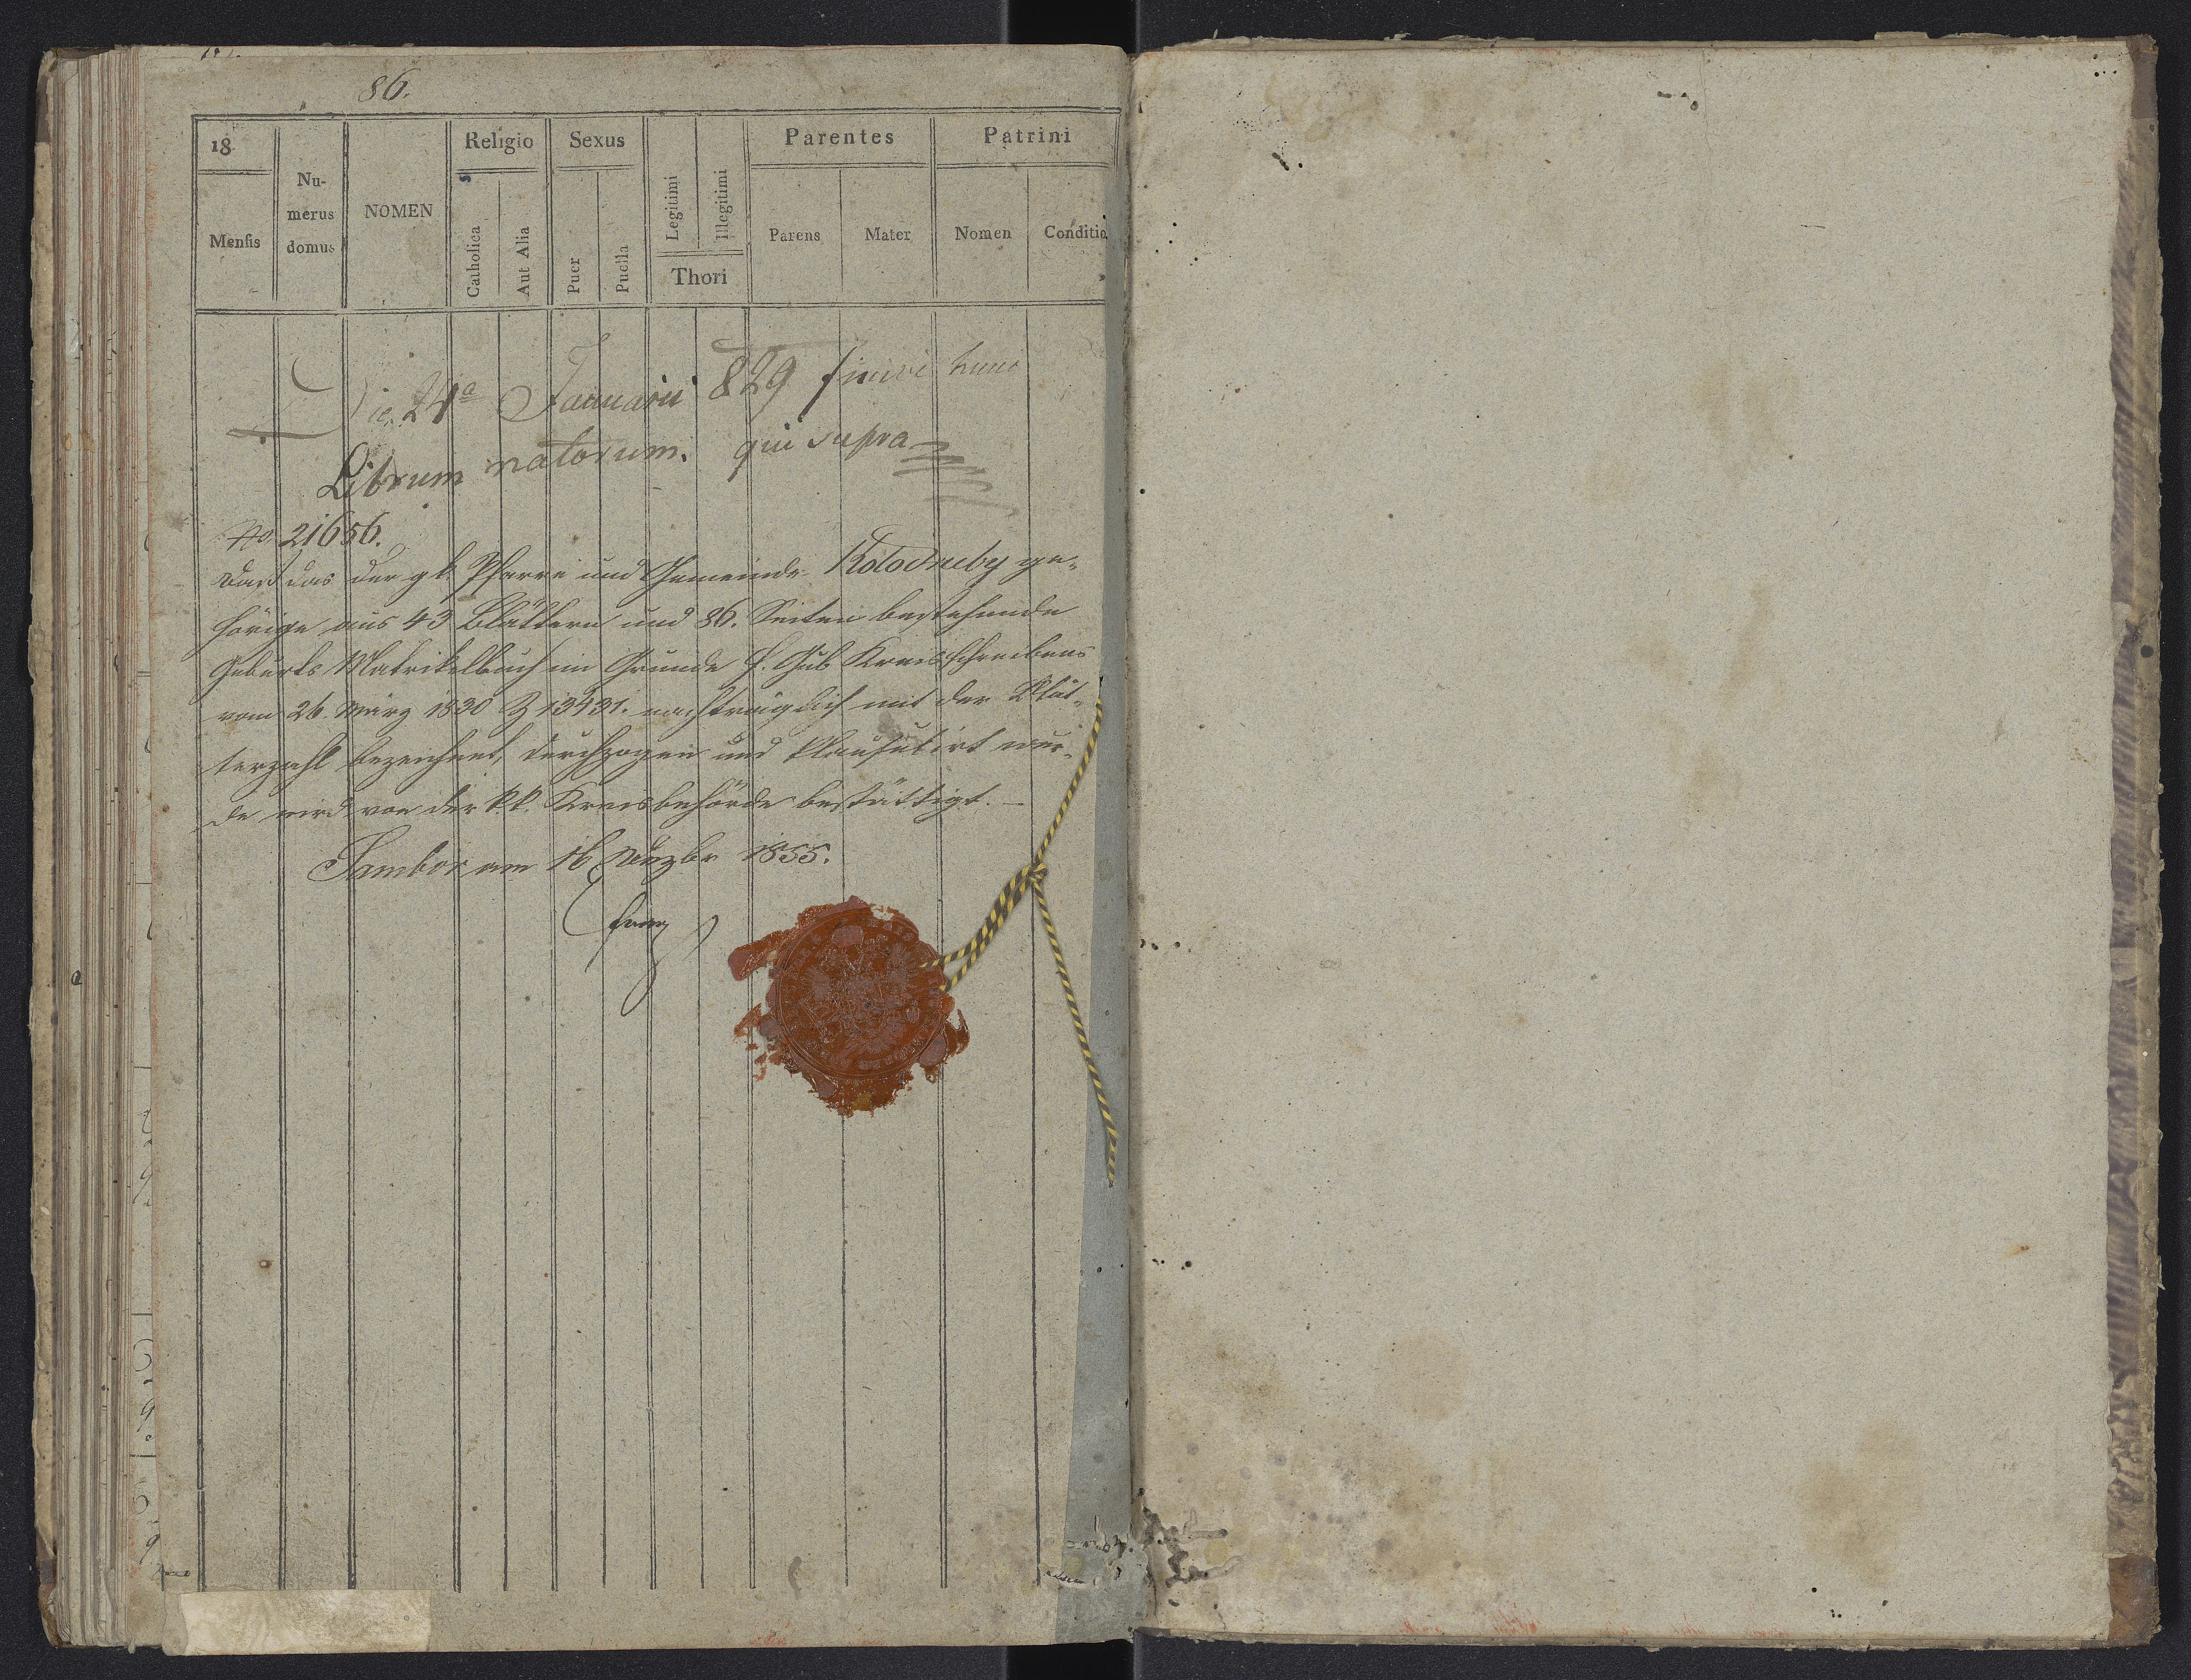 86.
18
Religio
Sexus
Parentes
Patrini
Mensis
Nu-
merus
domus
NOMEN
Catholica
Aut Alia
Puer
Puella
Legitimi
Illegitimi
Thori
Parens
Mater
Nomen
Conditio
Die 24a Januarii 829 finivi hunc
Librum natorum. qui supra
No 21656.
Daß das der gk. Pfarre und Gemeinde Kolodruby ge-
hörige aus 43 Blättern und 86. Seiten bestehende
Geburts Matrikelbuch im Grunde h. Gub Kreisschreibens
vom 26. März 1830 Z 13431. nachträglich mit der Blät-
terzahl bezeichnet, durchzogen und klausulirt wur-
de wird von der k.k. Kreisbehörde bestättigt.
Sambor am 16 Dezbr 1855.